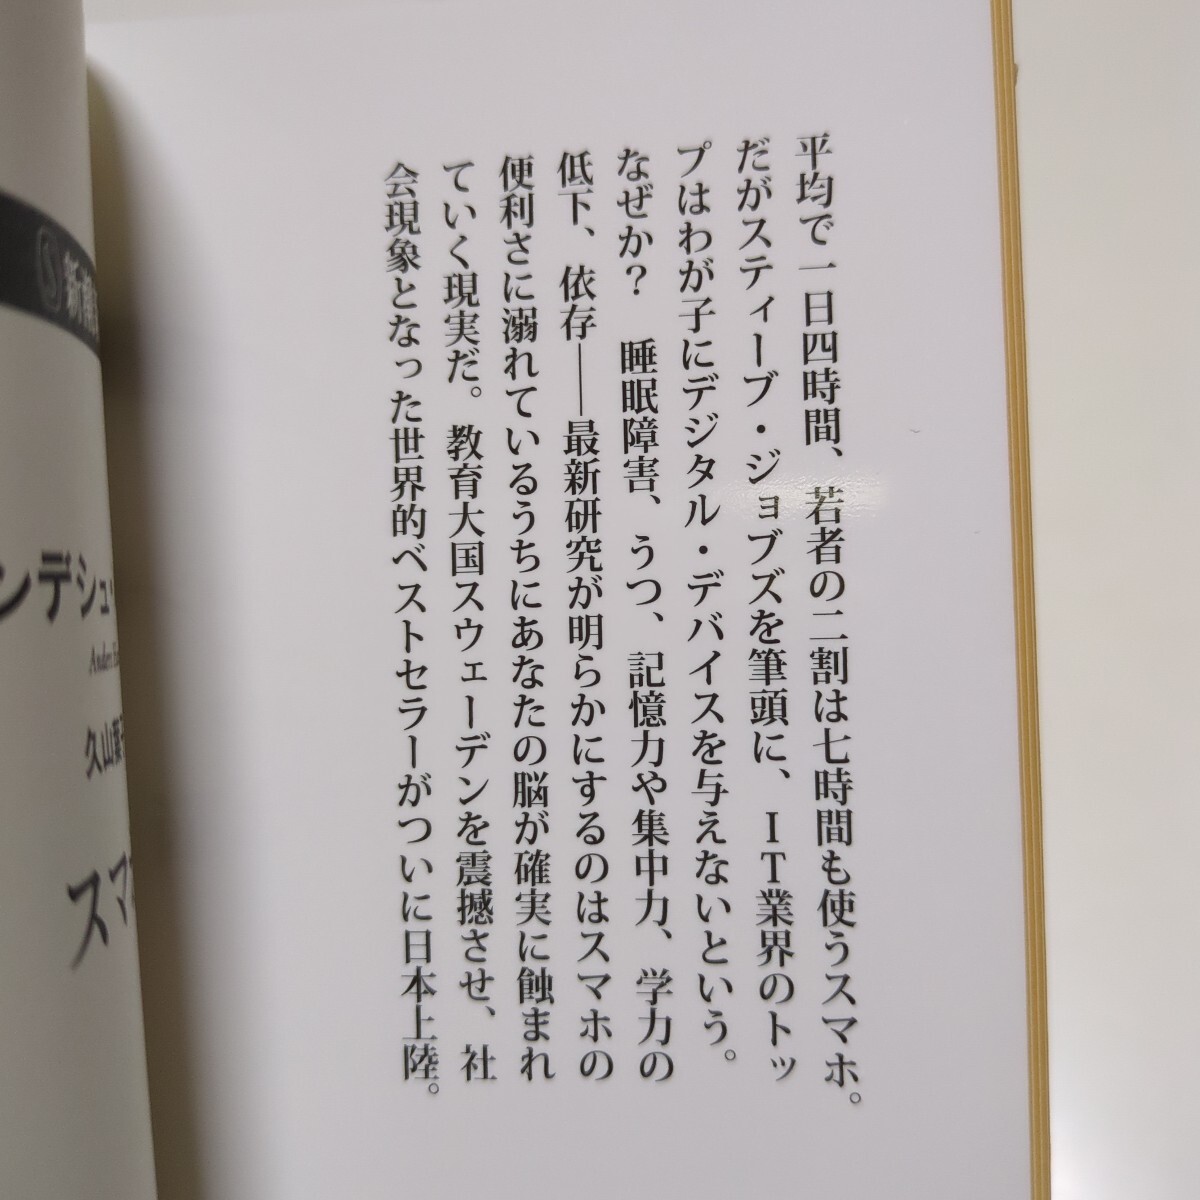 平均で一日四時間、若者の二割は七時間も使うスマホ。
だがスティーブ・ジョブズを筆頭に、IT業界のトッ
プはわが子にデジタル・デバイスを与えないという。
なぜか？　睡眠障害、うつ、記憶力や集中力、学力の
低下、依存――最新研究が明らかにするのはスマホの
便利さに溺れているうちにあなたの脳が確実に蝕まれ
ていく現実だ。教育大国スウェーデンを震撼させ、社
会現象となった世界的ベストセラーがついに日本上陸。
S 新潮
ンデシュ
Anders
久山葉
スマ